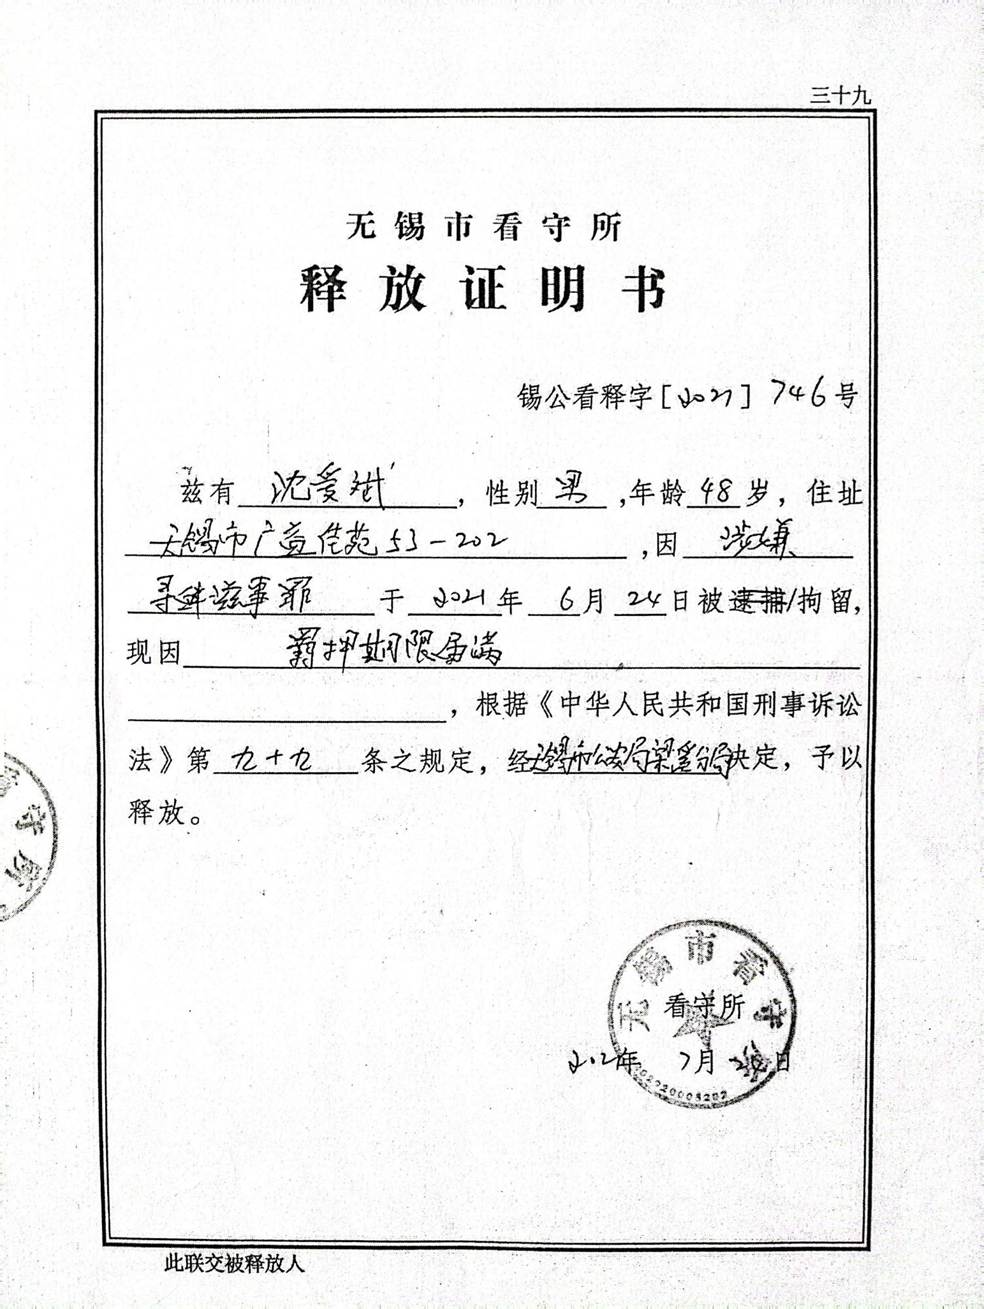 三十九
无锡市看守所
释放证明书
锡公看释字[2021]746号
兹有沈爱斌,性别男,年龄48岁,住址
无锡市广益佳苑53-202,因涉嫌
寻衅滋事罪于2021年6月24日被逮捕/拘留,
现因羁押期限届满
,根据《中华人民共和国刑事诉讼
法》第九十九条之规定,经无锡市公安局梁溪分局决定,予以
释放。
无锡市看守所
看守所
2021年7月24日
守所
此联交被释放人